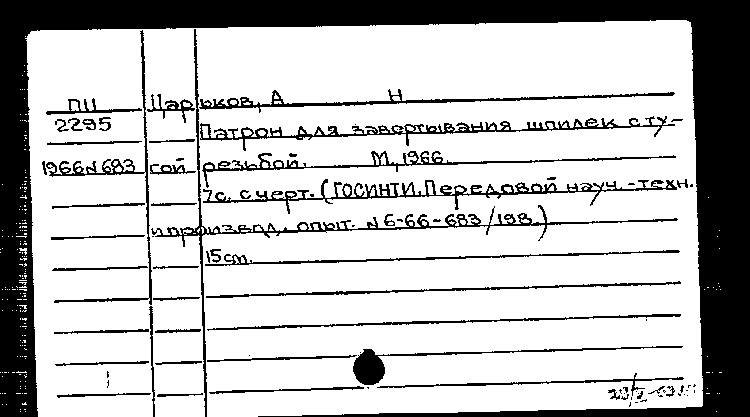 ПII Царьков, А Н
2295 Патрон для завертывания шпилек с ту-
1966 N 683 гой резьбой. М, 1966
7с. с черт. (ГОСИНТИ. Передовой науч.-техн.
и произвд. опыт. N 6-66-683/198.)
15 cm.